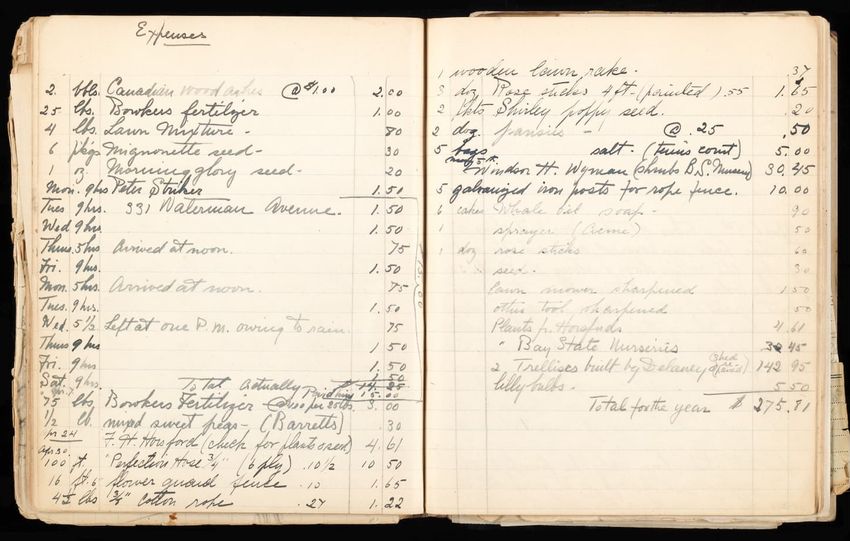 Expenses
2 bbls. Canadian wood ashes @ $1.00 2.00
25 lbs. Bowkers fertilizer 1.00
4 lbs. Lawn Mixture - 80
6 pkgs Mignonette seed - 30
1 oz. Morning glory seed - 20
Mon. 9 hrs Peter Striker 1.50
Tues 9 hrs. 331 Waterman Avenue. 1.50
Wed 9 hrs. 1.50
Thurs. 5 hrs Arrived at noon. 75
Fri. 9 hrs. 1.50
Mon. 5 hrs. Arrived at noon. 75
Tues. 9 hrs. 1.50
Wed. 5 1/2 Left at one P.M. owing to rain. 75
Thurs 9 hrs 1 50
Fri. 9 hrs. 1.50
Sat. 9 hrs. 1 50
Total Actually 14.25
Paid him 15.00
75 lbs Bowkers Fertilizer @ per 25 lbs. 3.00
1/2 lb. mixed sweet peas - (Barretts) .30
apr 24 F. H. Horsford (check for plants & seed) 4.61
apr 30
100 ft. "Perfection Hose 3/4" (6 ply) .10 1/2 10 50
16 ft. 6" flower guard fence .10 1.65
4 1/2 lbs 3/8" cotton rope .27 1.22
1 wooden lawn rake. 37
3 doz Rose sticks 4 ft. (painted) .55 1.65
2 pkts Shirley poppy seed. .20
2 doz. pansies - @ .25 .50
5 bags salt. (tennis court) 5.00
may 5th. Windsor H. Wyman (shrubs B.S. Nurseries) 30.45
5 galvanized iron posts for rope fence. 10.00
6 cakes Whale oil soap - 90
1 sprayer (Acme) 50
1 doz rose sticks 60
seed. 30
lawn mower sharpened 1.50
other tool sharpened 50
Plants fr. Horsfords 4.61
" Bay State Nurseries 30 45
2 Trellises built by Delaney (shed) 142 95
lily bulbs - 5.50
Total for the year $ 275.81